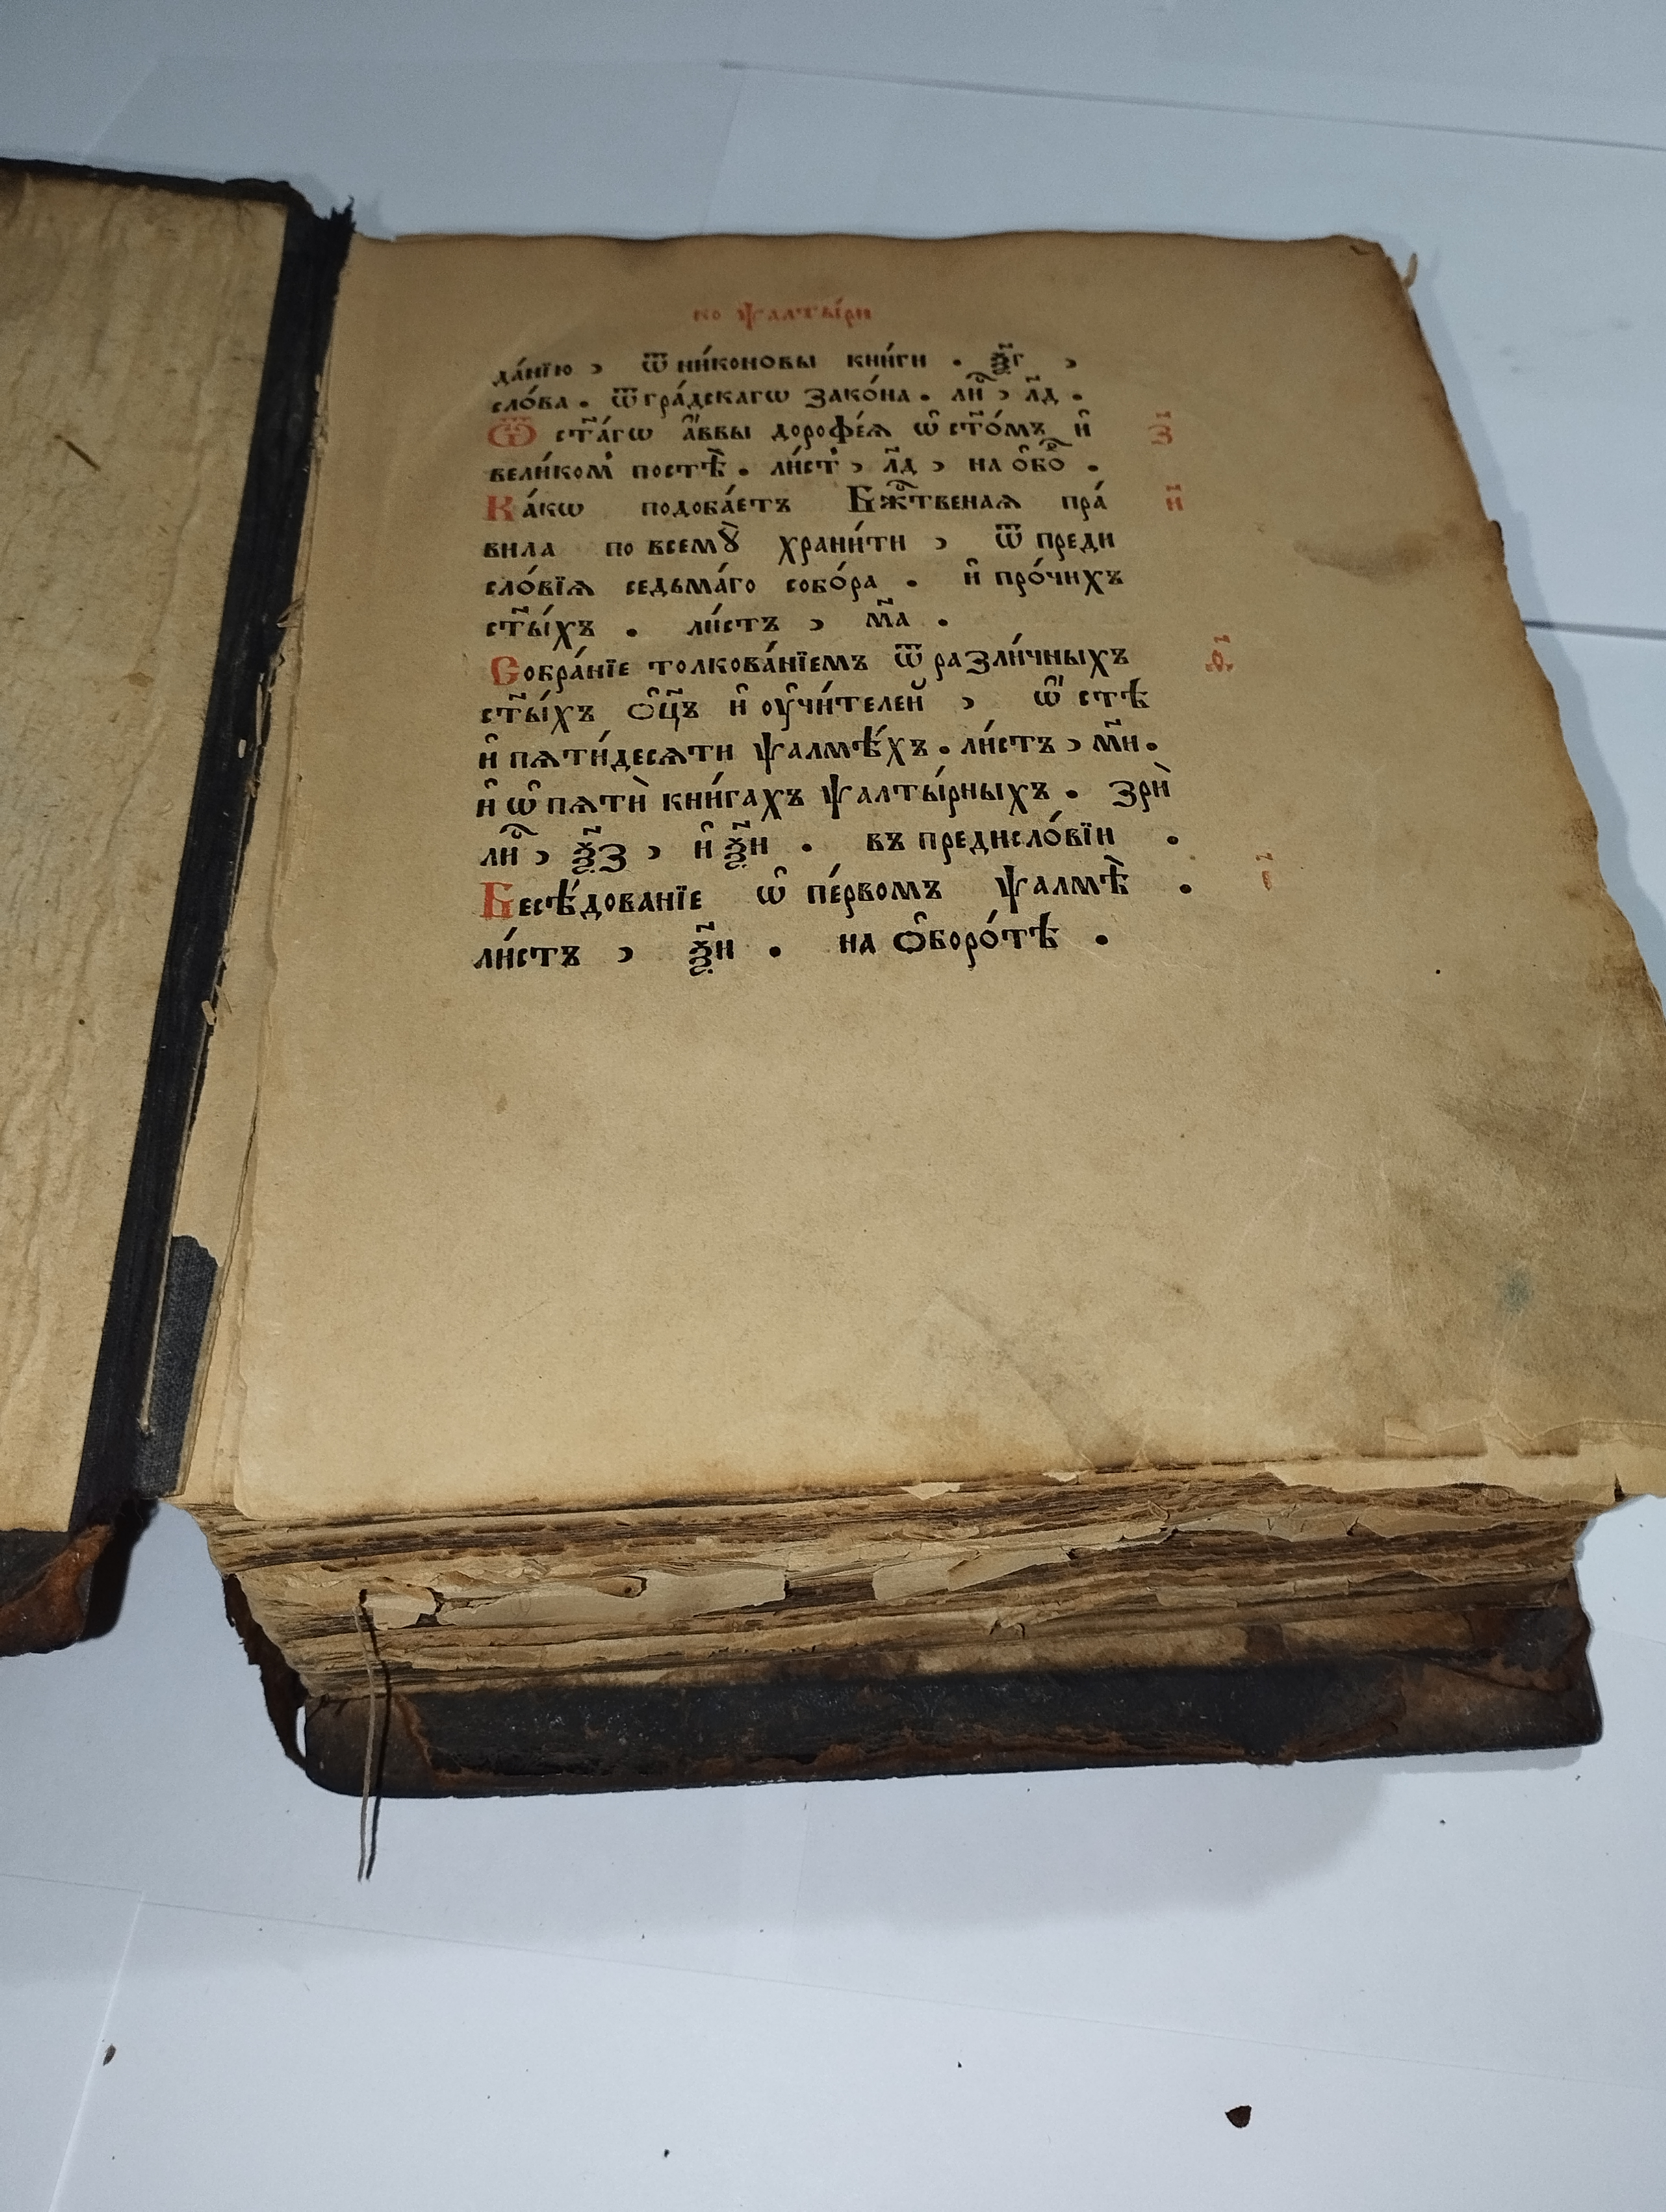 ко ѱалты́ри
да́нїю , ѿ ни́коновы кни́ги . ѯ҃г ,
сло́ва . ѿ гра́дскагѡ зако́на . лиⷭ҇ , л҃д .
Ѿ ст҃а́гѡ а҆́ввы дорофе́ѧ ѡ҆ ст҃о́мъ и҆ з҃
вели́ком постѣ̀ . ли́ст , л҃д , на ѻ҆боⷬ҇ .
Ка́кѡ подоба́етъ Бжⷭ҇твенаѧ пра́ и҃
вила по всемꙋ̀ храни́ти , ѿ преди
сло́вїѧ седьма́го собо́ра . и҆ про́чихъ
ст҃ы́хъ . ли́стъ , м҃а .
Собра́нїе толкова́нїемъ ѿ разли́чныхъ ѳ҃
ст҃ы́хъ ѻ҆ц҃ъ и҆ ѹ҆чи́телей , ѡ҆ стѣ
и҆ пѧти́десѧти ѱалмѣ́хъ . ли́стъ , м҃и .
и҆ ѡ҆ пѧтѝ кни́гахъ ѱалты́рныхъ . зрѝ
лиⷭ҇ , ѯ҃з , и҆ ѯ҃и . въ предисло́вїи .
Бесѣ́дованїе ѡ҆ пе́рвомъ ѱалмѣ̀ . і҃
ли́стъ , ѯ҃и . на ѻ҆боро́тѣ .